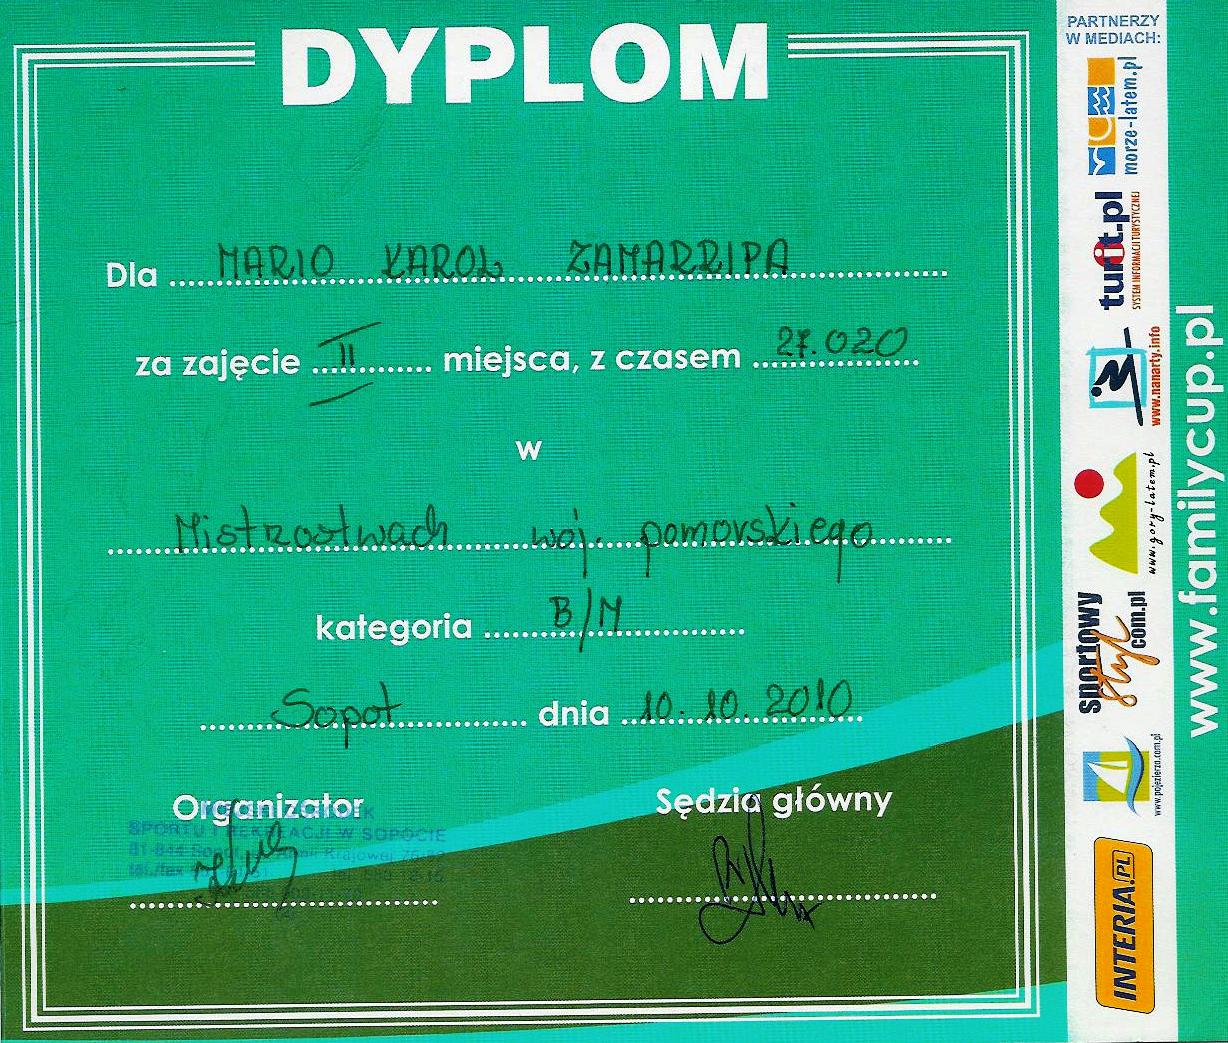 DYPLOM
Dla MARIO KAROL ZAMARRIPA
za zajęcie II miejsca, z czasem 27.020
w
Mistrzostwach woj. pomorskiego
kategoria B/M
Sopot dnia 10.10.2010
Organizator
Sędzia główny
SPORTU I REKREACJI W SOPOCIE
81-844 Sopot, Armii Krajowej
tel./fax
PARTNERZY
W MEDIACH:
morze-latem.pl
turit.pl
SYSTEM INFORMACJI TURYSTYCZNEJ
www.nanarty.info
www.gory-latem.pl
sportowy
styl
com.pl
www.pojezierza.com.pl
INTERIA.PL
www.familycup.pl